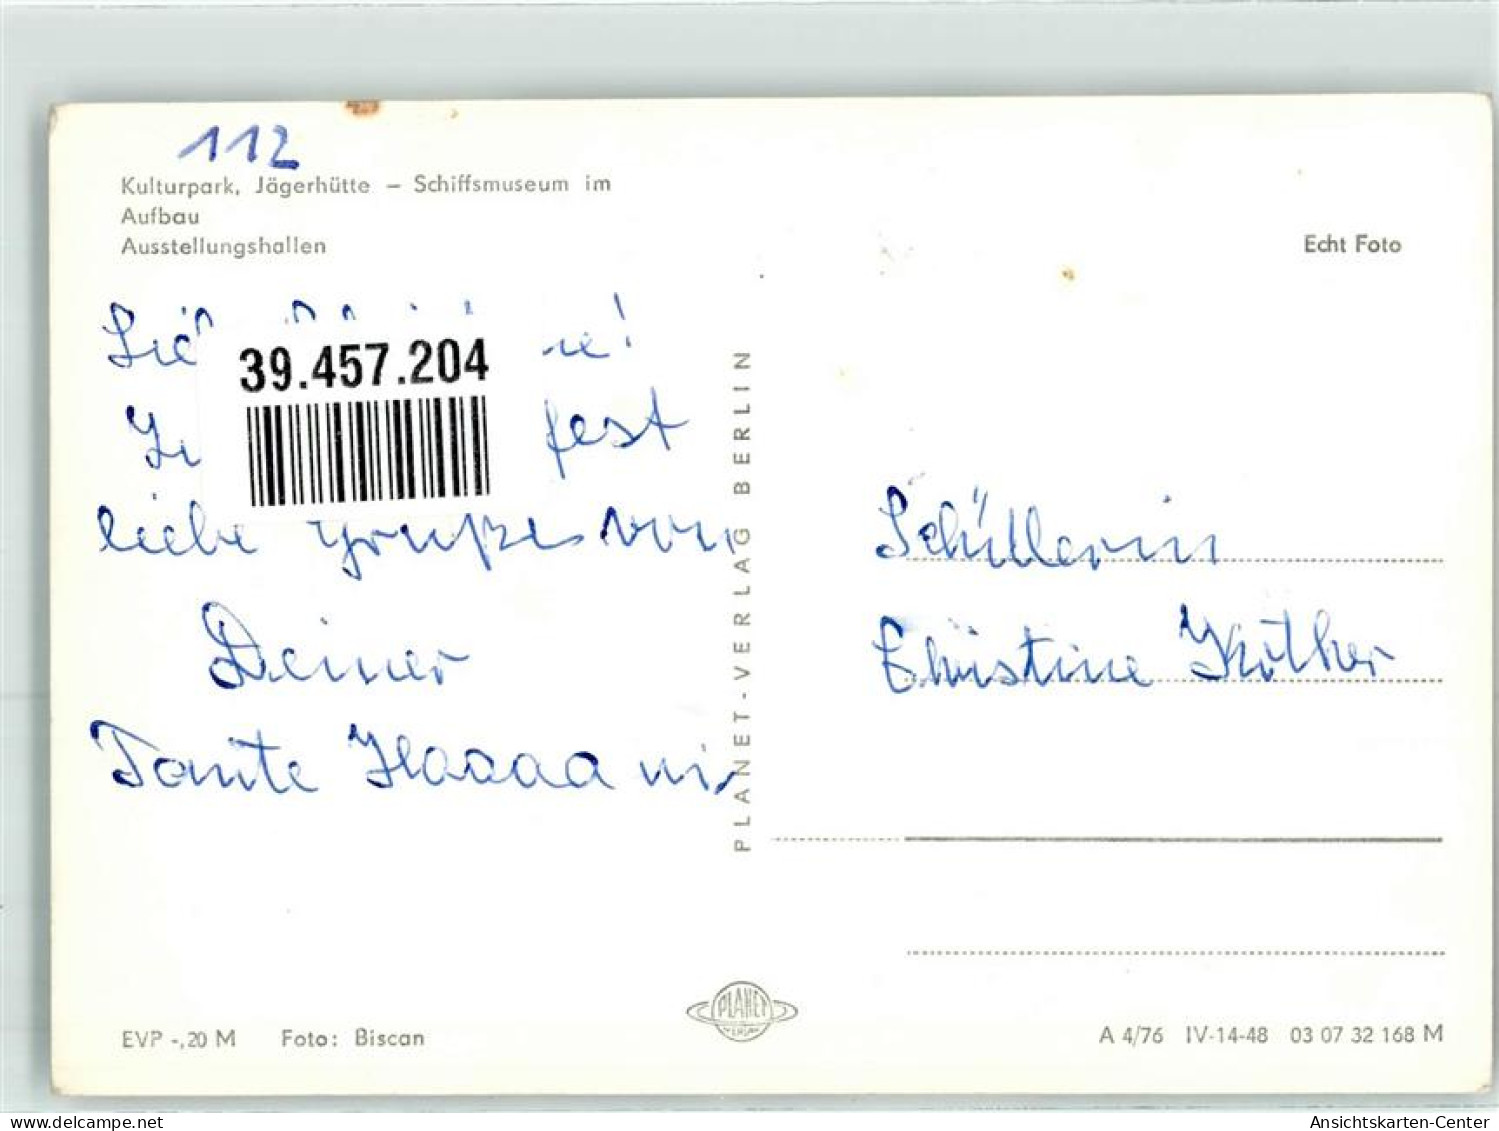 112
Kulturpark, Jägerhütte – Schiffsmuseum im
Aufbau
Ausstellungshallen
Echt Foto
39.457.204
liebe Grüße von
Deiner
Tante
PLANET-VERLAG BERLIN
Schüllerin
Christine
PLANET
VERLAG
EVP -,20 M Foto: Biscan
A 4/76 IV-14-48 03 07 32 168 M
www.delcampe.net
Ansichtskarten-Center